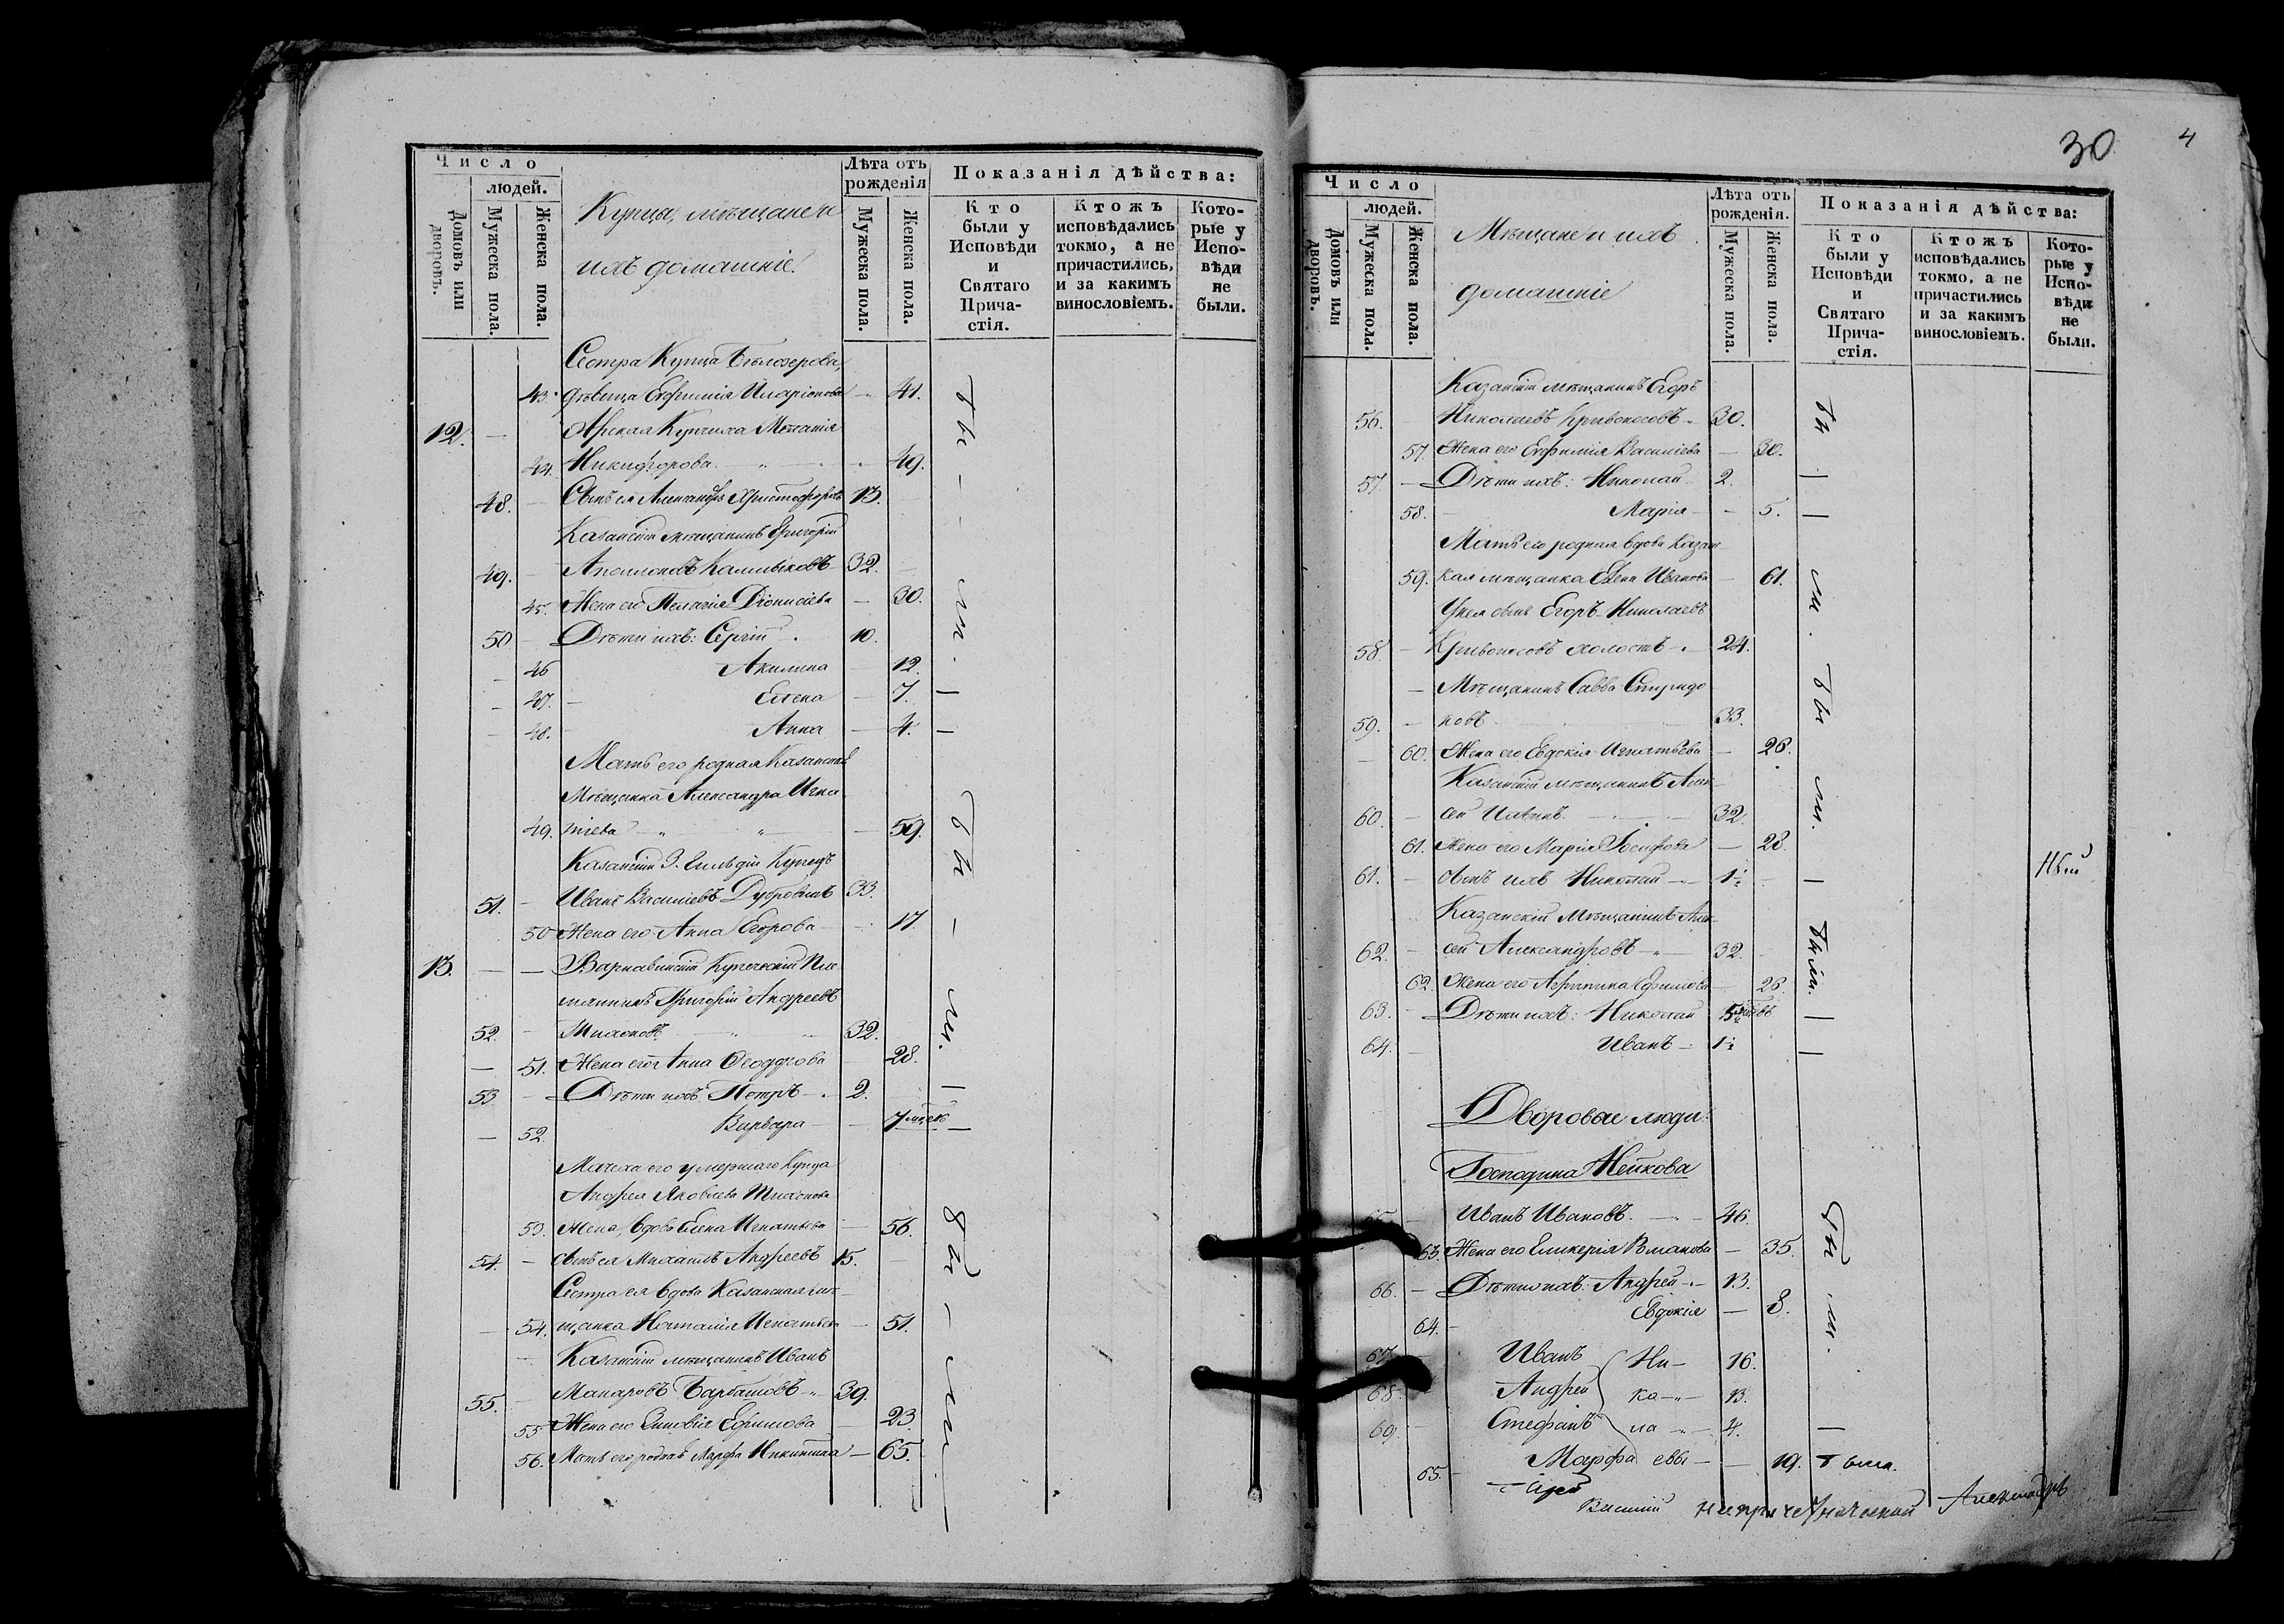 Число
людей.
Домовъ или дворовъ.
Мужеска пола.
Женска пола.
Купцы, мѣщане и
ихъ домашніе.
Лѣта отъ
рожденія
Мужеска пола.
Женска пола.
Показанія дѣйства:
Кто
были у
Исповѣди
и
Святаго
Прича-
стія.
Ктожъ
исповѣдались
токмо, а не
причастились,
и за какимъ
винословіемъ.
Кото-
рые у
Испо-
вѣди
не
были.
Сестра Купца Бѣлозерова,
43. дѣвица Евфимія Иларіонова 41.
12. Арская Купчиха Меланія
44. Никифорова 49.
48. Сынъ ея Александръ Христофоровъ 13.
Казанскій мѣщанинъ Григорій
49. Аполлоновъ Калмыковъ 32.
45. Жена его Пелагія Діонисіева 30.
50 Дѣти ихъ: Сергій 10.
46 Акилина 12.
47. Елена 7.
48. Анна 4.
Мать его родная Казанская
Мѣщанка Александра Игна
49. тіева 59.
Казанскій 3. гильдіи Купецъ
51. Иванъ Василіевъ Дубровинъ 33.
50 Жена его Анна Егорова 17.
13. Варнавинскій Купеческій Пле
мянникъ Григорій Андреевъ
52. Тихоновъ 32.
51. Жена его Анна Ѳеодорова 28.
53 Дѣти ихъ Петръ 2.
52. Варвара 7 мцевъ
Мачиха его умершаго Купца
Андрея Яковлева Тихонова
53. Жена, вдова Елена Игнатьева 56.
54. Сынъ ея Михаилъ Андреевъ 15.
Сестра ея вдова Казанская мѣ
54. щанка Наталія Игнатьева 51.
Казанскій мѣщанинъ Иванъ
55. Макаровъ Барбашовъ 39.
55 Жена его Зиновія Ефимова 23
56. Мать его родная Марфа Никитина 65.
были.
были
были
30
4
Число
людей.
Домовъ или дворовъ.
Мужеска пола.
Женска пола.
Мѣщане и ихъ
домашніе
Лѣта отъ
рожденія.
Мужеска пола.
Женска пола.
Показанія дѣйства:
Кто
были у
Исповѣди
и
Святаго
Прича-
стія.
Ктожъ
исповѣдались
токмо, а не
причастились
и за какимъ
винословіемъ.
Кото-
рые у
Испо-
вѣди
не
были.
Казанскій мѣщанинъ Егоръ
56. Николаевъ Кривоносовъ 30.
57. Жена его Евфимія Василіева 30.
57. Дѣти ихъ: Николай 2.
58. Марія 5.
Мать его родная вдова Казан
59. кая мѣщанка Елена Иванова 61.
У нея сынъ Егоръ Николаевъ
58. Кривоносовъ холостъ 24.
Мѣщанинъ Савва Спиридо
59. новъ 33.
60. Жена его Евдокія Игнатьева 26.
Казанскій мѣщанинъ Алек
60. сей Ильинъ 32.
61. Жена его Марія Іосифова 28.
61. Сынъ ихъ Николай 1½
Казанскій Мѣщанинъ Алек
62. сей Александровъ 32.
62. Жена его Агрипина Ефимова 26.
63. Дѣти ихъ: Николай
64. Иванъ 1½
Дворовые люди:
Господина Нейкова
Иванъ Ивановъ. 46.
63. Жена его Гликерія Романова 35.
66. Дѣти ихъ: Андрей 13.
64. Евдокія 8.
67 Иванъ Ни- 16.
68 Андрей ка- 13.
69. Стефанъ ла 4.
65. Марфа евы 19. была.
были
были
были
были
Василій Александръ